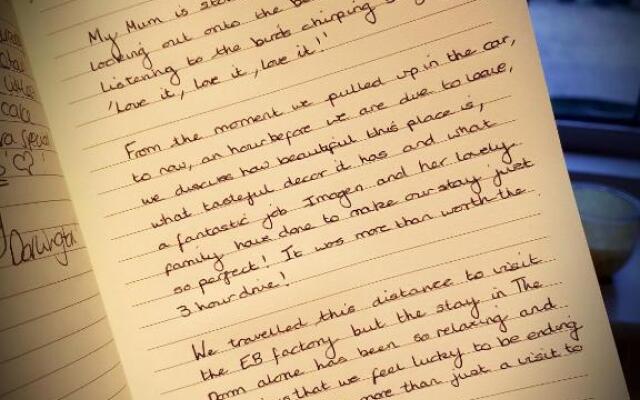 My Mum is
looking out onto the
listening to the birds chirping
'Love it, love it, love it!'
From the moment we pulled up in the car,
to now, an hour before we are due to leave,
we discuss how beautiful this place is,
what tasteful decor it has and what
a fantastic job Imogen and her lovely
family have done to make our stay just
so perfect! It was more than worth the
3 hour drive!
We travelled this distance to visit
the EB factory but the stay in The
alone has been so relaxing and
that we feel lucky to be ending
more than just a visit to